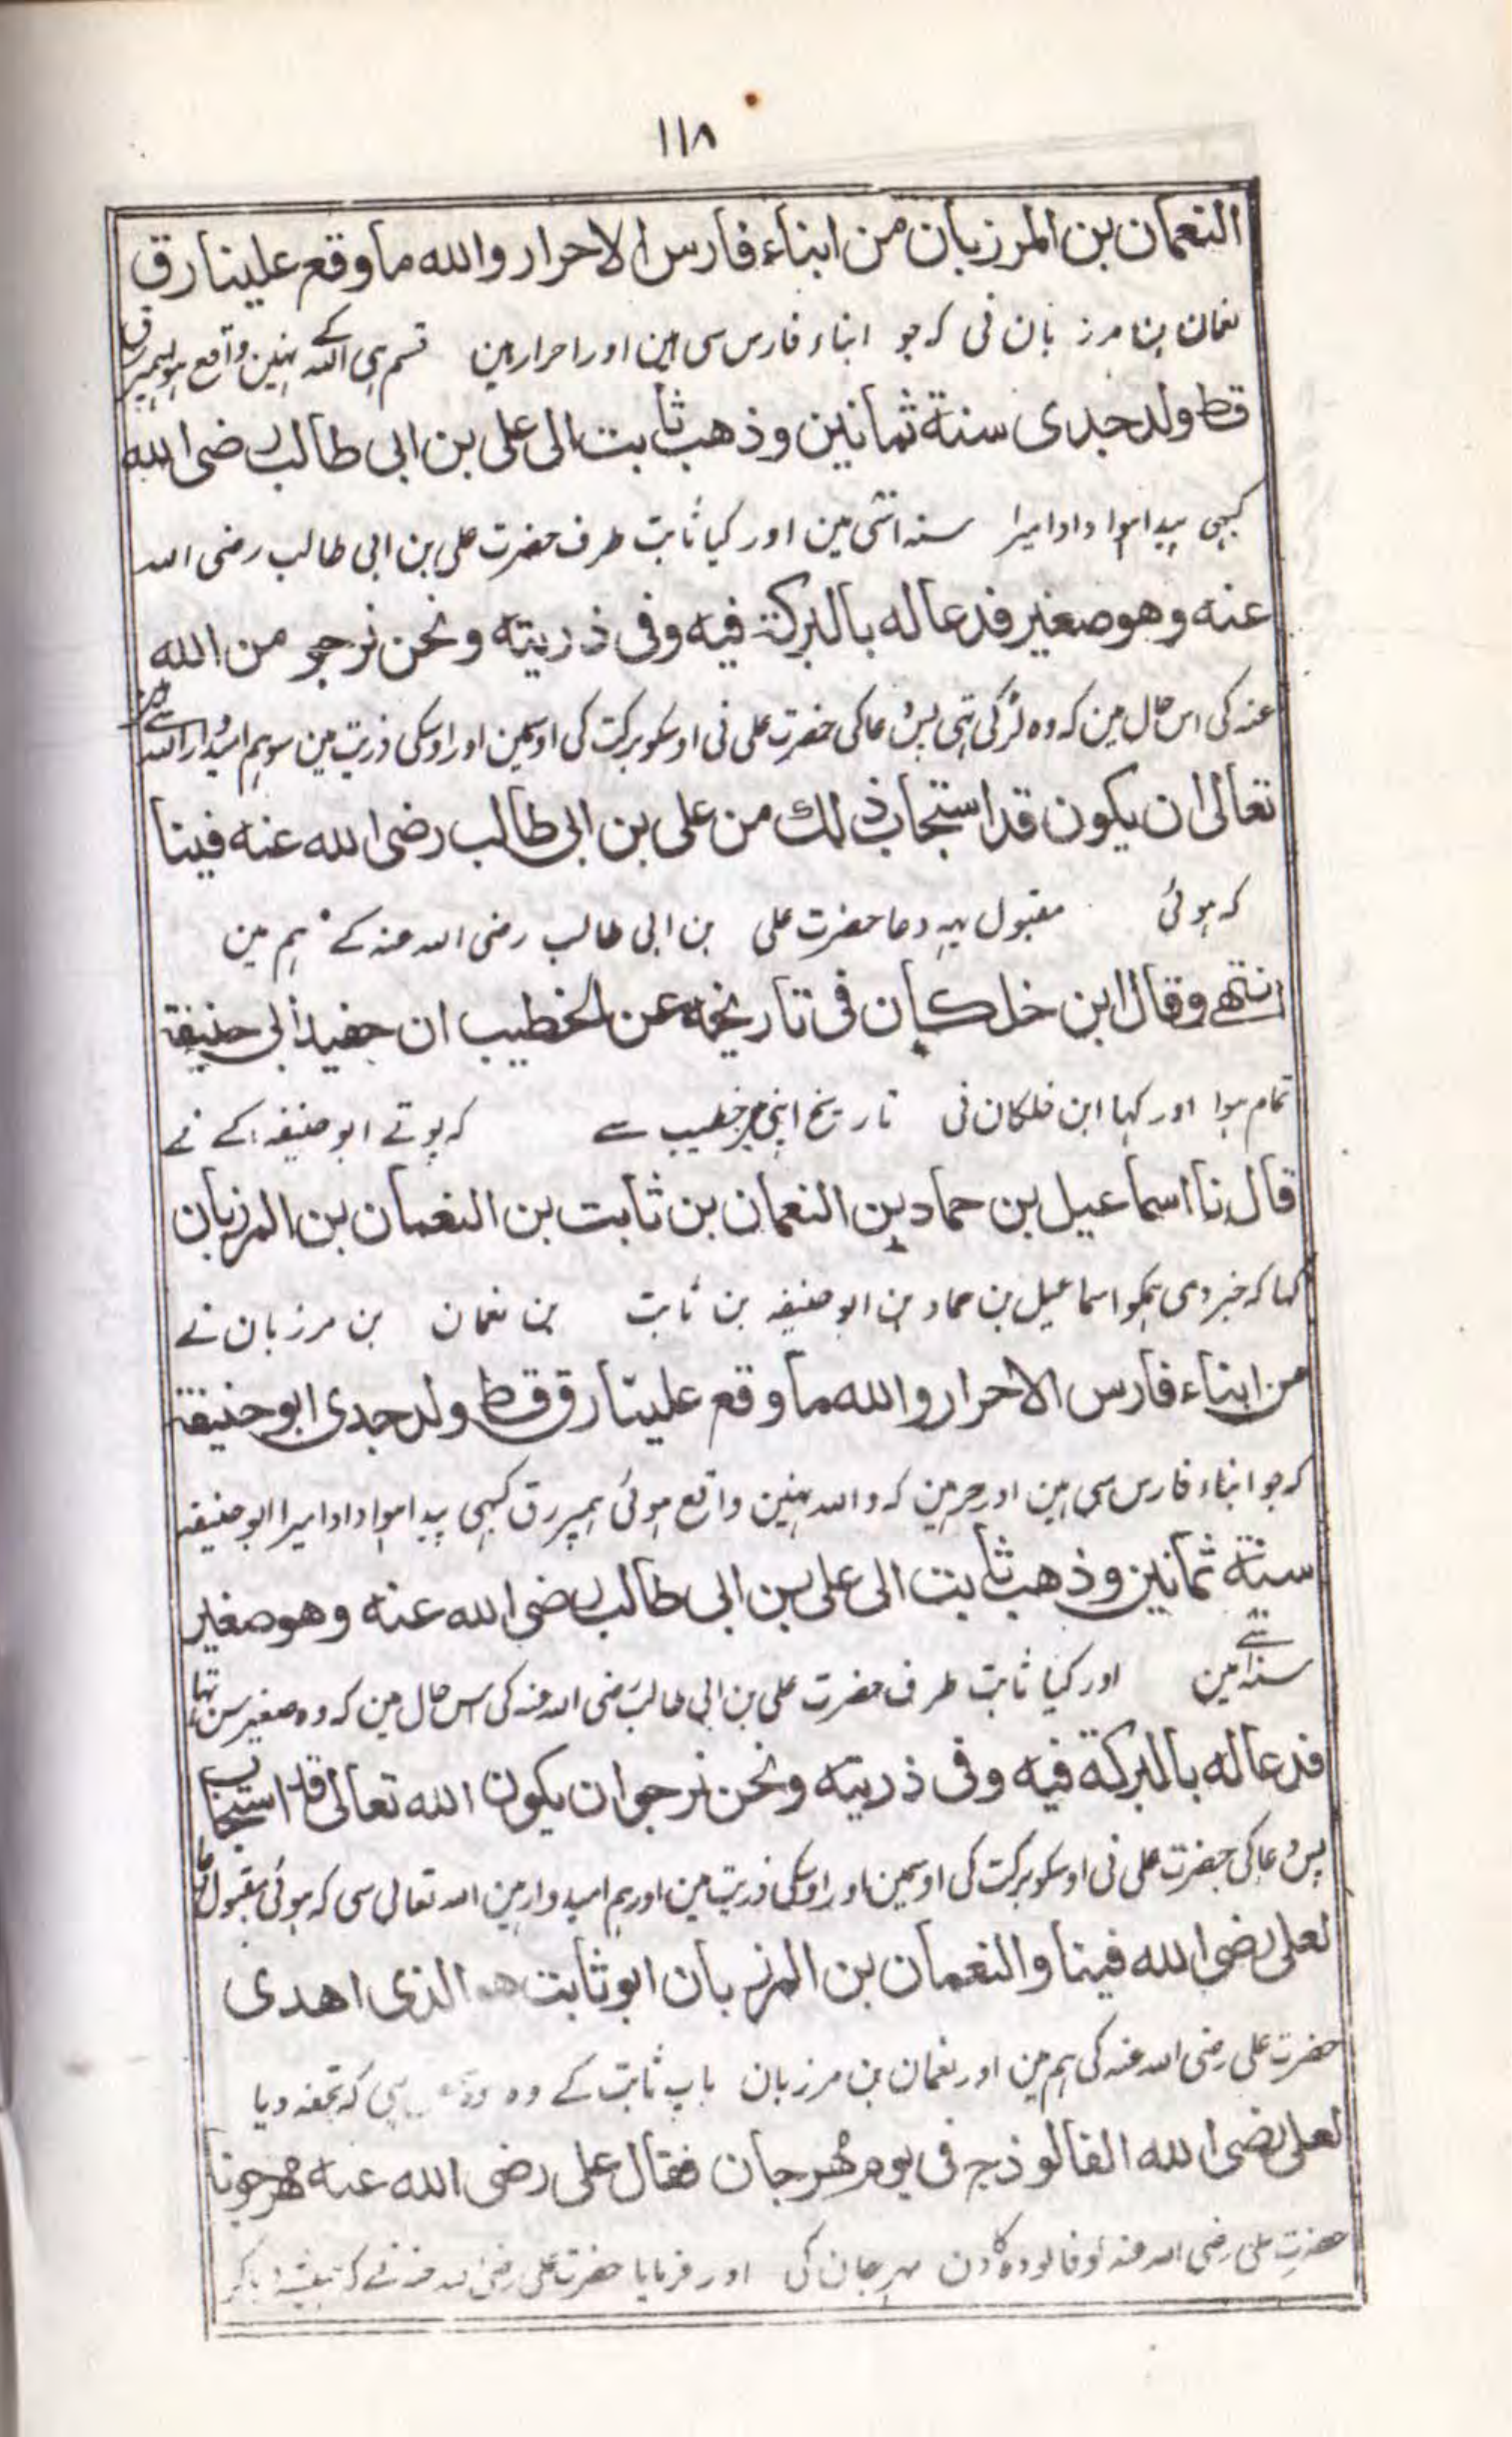 ١١٨
النعمان بن المرزبان من ابناء فارس الاحرار والله ما وقع علينا رق
نعمان بن مرز بان نی کہ جو ابناء فارس سی ہین اور احرار ہین قسم ہی اللہ کے نہین واقع ہوا ہمپر رق
قط ولد جدی سنة ثمانين وذهب ثابت الى على بن ابى طالب رضى الله
کبہی پیدا ہوا دادا میرا سنہ اسّی مین اور گیا ثابت طرف حضرت علی بن ابی طالب رضی اللہ
عنه وهو صغير فدعا له بالبركة فيه وفى ذريته ونحن نرجو من الله
عنہ کی اس حال مین کہ وہ لڑکی تہی پس دعا کی حضرت علی نی اوسکو برکت کی اوسمین اور اوسکی ذریت مین سو ہم امیدوار اللہ سے ہین
تعالى ان يكون قد استجاب ذلك من على بن ابى طالب رضى الله عنه فينا
کہ ہوئی مقبول یہہ دعا حضرت علی بن ابی طالب رضی اللہ عنہ کے ہم مین
انتهى وقال ابن خلكان فى تاريخه عن الخطيب ان حفيد ابى حنيفة
تمام ہوا اور کہا ابن خلکان نی تاریخ اپنی مین خطیب سے کہ پوتے ابو حنیفہ کے نے
قال نا اسماعيل بن حماد بن النعمان بن ثابت بن النعمان بن المرزبان
کہا کہ خبر دی ہمکو اسماعیل بن حماد بن ابو حنیفہ بن ثابت بن نعمان بن مرزبان نے
من ابناء فارس الاحرار والله ما وقع علينا رق قط ولد جدى ابو حنيفة
کہ جو ابناء فارس سی ہین اور حر ہین کہ واللہ نہین واقع ہوئی ہمپر رق کبہی پیدا ہوا دادا میرا ابو حنیفہ
سنة ثمانين وذهب ثابت الى على بن ابى طالب رضى الله عنه وهو صغير
سنہ اسّی مین اور گیا ثابت طرف حضرت علی بن ابی طالب رضی اللہ عنہ کی اس حال مین کہ وہ صغیر سن تہا
فدعا له بالبركة فيه وفى ذريته ونحن نرجو ان يكون الله تعالى قد استجاب
پس دعا کی حضرت علی نی اوسکو برکت کی اوسمین اور اوسکی ذریت مین اور ہم امیدوار ہین اللہ تعالی سی کہ ہوئی مقبول دعا
لعلى رضى الله فينا والنعمان بن المرزبان ابو ثابت هو الذى اهدى
حضرت علی رضی اللہ عنہ کی ہم مین اور نعمان بن مرزبان باپ ثابت کے وہ ہی کہ تحفہ دیا
لعلى رضى الله الفالوذج فى يوم مهرجان فقال على رضى الله عنه مهرجونا
حضرت علی رضی اللہ عنہ کو فالودہ کا دن مہرجان کی اور فرمایا حضرت علی رضی اللہ عنہ نے کہ